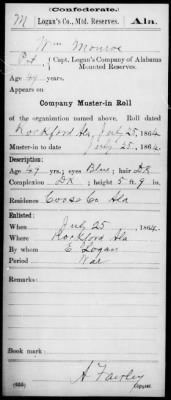 (Confederate.)
M | Logan's Co., Mtd. Reserves. | Ala.
Wm Monroe
Pvt, { Capt. Logan's Company of Alabama Mounted Reserves.
Age 47 years.
Appears on
Company Muster-in Roll
of the organization named above. Roll dated
Rockford Ala, July 25, 1864.
Muster-in to date July 25, 1864.
Description:
Age 47 yrs.; eyes Blue; hair DK
Complexion DK; height 5 ft. 9 in.
Residence Coosa Co. Ala
Enlisted:
When July 25, 1864.
Where Rockford Ala
By whom E Logan
Period War
Remarks:
Book mark:
Copyist.